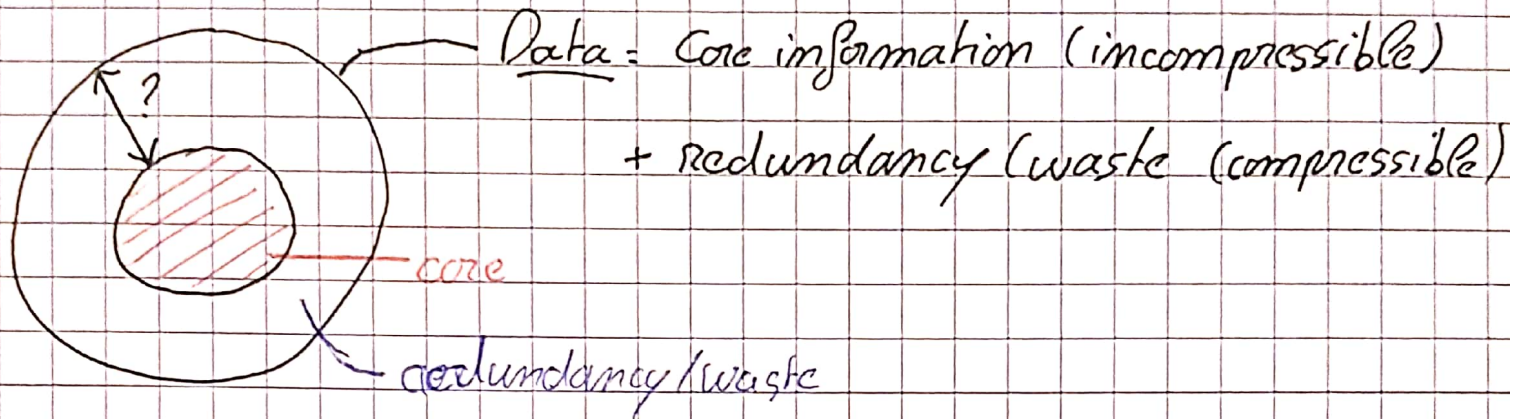 Data = Core information (incompressible)
?
+ redundancy (waste (compressible)
core
redundancy/waste